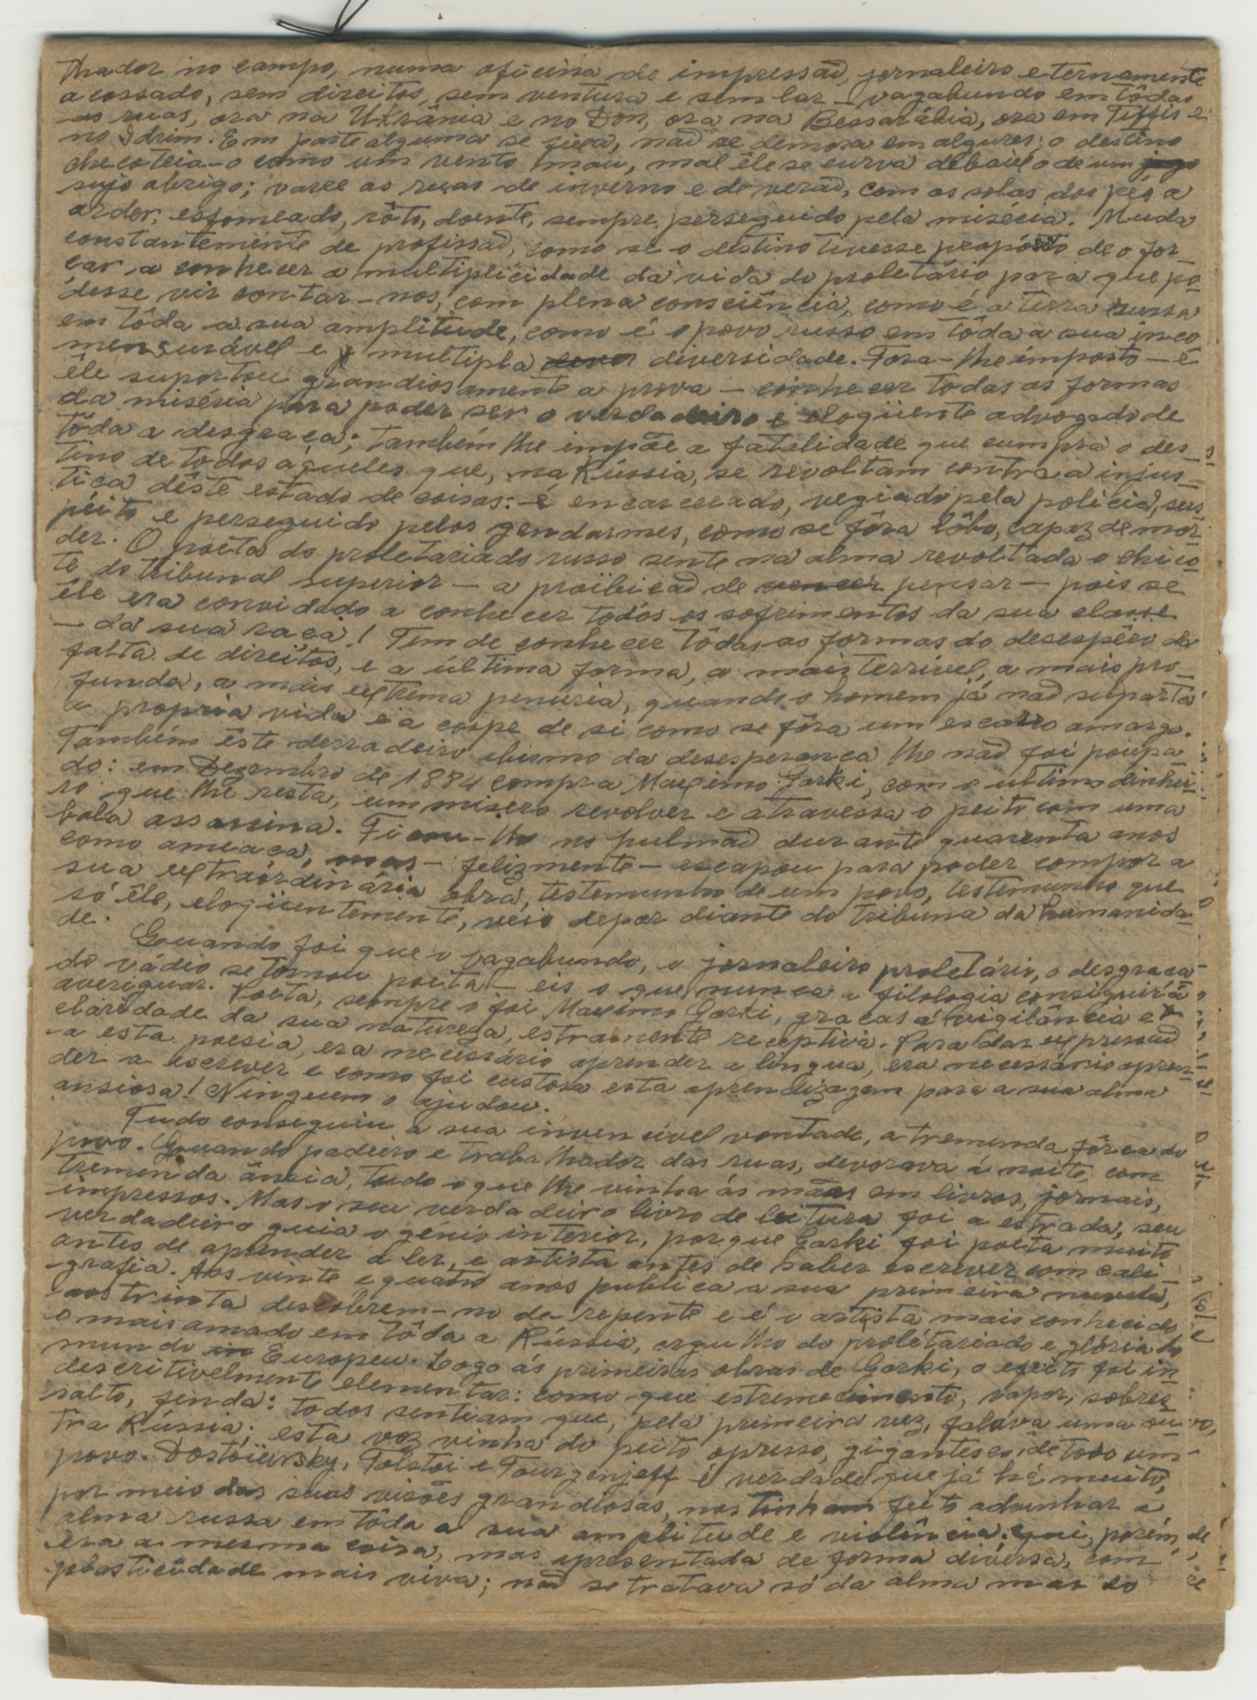 lhador no campo, numa oficina de impressão, jornaleiro eternamente
acossado, sem direitos, sem ventura e sem lar — vagabundo em tôdas
as ruas, ora na Ukrânia e no Don, ora na Bessarábia, ora em Tiflis e
no Krim. Em parte alguma se fixa, não se demora em algures; o destino
chicoteia-o como um vento mau, mal êle se curva debaixo de um
sujo abrigo; varre as ruas de inverno e de verão, com as solas dos pés a
arder, esfomeado, rôto, doente, sempre perseguido pela miséria. Muda
constantemente de profissão, como se o destino tivesse propósito de o for-
çar a conhecer a multiplicidade da vida do proletário para que po-
desse vir contar-nos, com plena consciência, como é a terra russa
em tôda a sua amplitude, como é o povo russo em tôda a sua inco-
mensurável e multipla diversidade. Fora-lhe imposto — e
êle suportou grandiosamente a prova — conhecer todas as formas
da miséria para poder ser o verdadeiro e eloqüente advogado de
tôda a desgraça; também lhe impõe a fatalidade que cumpra o des-
tino de todos aqueles que, na Rússia, se revoltam contra a injus-
tiça dêste estado de coisas: — é encarcerado, vegiado pela policia, sus-
peito e perseguido pelos gendarmes, como se fôra lôbo, capaz de mor-
der. O poeta do proletariado russo sente na alma revoltada o chico-
te do tribunal superior — a proïbição de pensar — pois se
êle era convidado a conhecer todos os sofrimentos da sua classe
— da sua raça! Tem de conhecer tôdas as formas do desespêro da
falta de direitos, e a última forma, a mais terrivel, a mais pro-
funda, a mais extrema penúria, quando o homem já não suporta
a propria vida e a cospe de si como se fôra um escarro amargo.
Também êste derradeiro abismo da desesperança lhe não foi poupa-
do: em Dezembro de 1884 compra Maximo Gorki, com o ultimo dinhei-
ro que lhe resta, um misero revolver e atravessa o peito com uma
bala assassina. Ficou-lhe no pulmão durante quarenta anos
como ameaça, mas — felizmente — escapou para poder compor a
sua extraordinária obra, testemunho de um povo, testemunho que
só êle, eloqüentemente, veio depor diante do tribuna da humanida-
de.
Quando foi que o vagabundo, o jornaleiro proletário, o desgraça-
do vádio se tornou poeta — eis o que nunca a filologia conseguirá
averiguar. Poeta, sempre o foi Maximo Gorki, graças á vigilância e
claridade da sua natureza, estramente receptiva. Para dar expressão
a esta poesia, era necessário aprender a língua, era necessário apren-
der a escrever e como foi custosa esta aprendizagem para a sua alma
ansiosa! Ninguem o ajudou.
Tudo conseguiu a sua invencível vontade, a tremenda fôrça do
povo. Quando padeiro e trabalhador das ruas, devorava á noite com
tremenda ânsia, tudo o que lhe vinha ás mãos em livros, jornais,
impressos. Mas o seu verdadeiro livro de leitura foi a estrada, seu
verdadeiro guia o génio interior, porque Gorki foi poeta muito
antes de aprender a ler, e artista antes de saber escrever com cali-
grafia. Aos vinte e quatro anos publica a sua primeira novela,
aos trinta descobrem-no de repente e é o artista mais conhecido,
o mais amado em tôda a Rússia, orgulho do proletariado e glória do
mundo Europeu. Logo ás primeiras obras de Gorki, o exito foi in-
descritivelmente elementar: como que estremecimento, vapor, sobres-
salto, fenda: todos sentiam que, pela primeira vez, falava uma ou-
tra Rússia; esta voz vinha do peito opresso, gigantesco, de todo um
povo. Dostoiewsky, Tolstoi e Tourgenjeff é verdade que já há muito,
por meio das suas visões grandiosas, nos tinham feito adivinhar a
alma russa em toda a sua amplitude e violência: aqui, porém,
era a mesma coisa, mas apresentada de forma diversa, com
plasticidade mais viva; não se tratava só da alma mas do